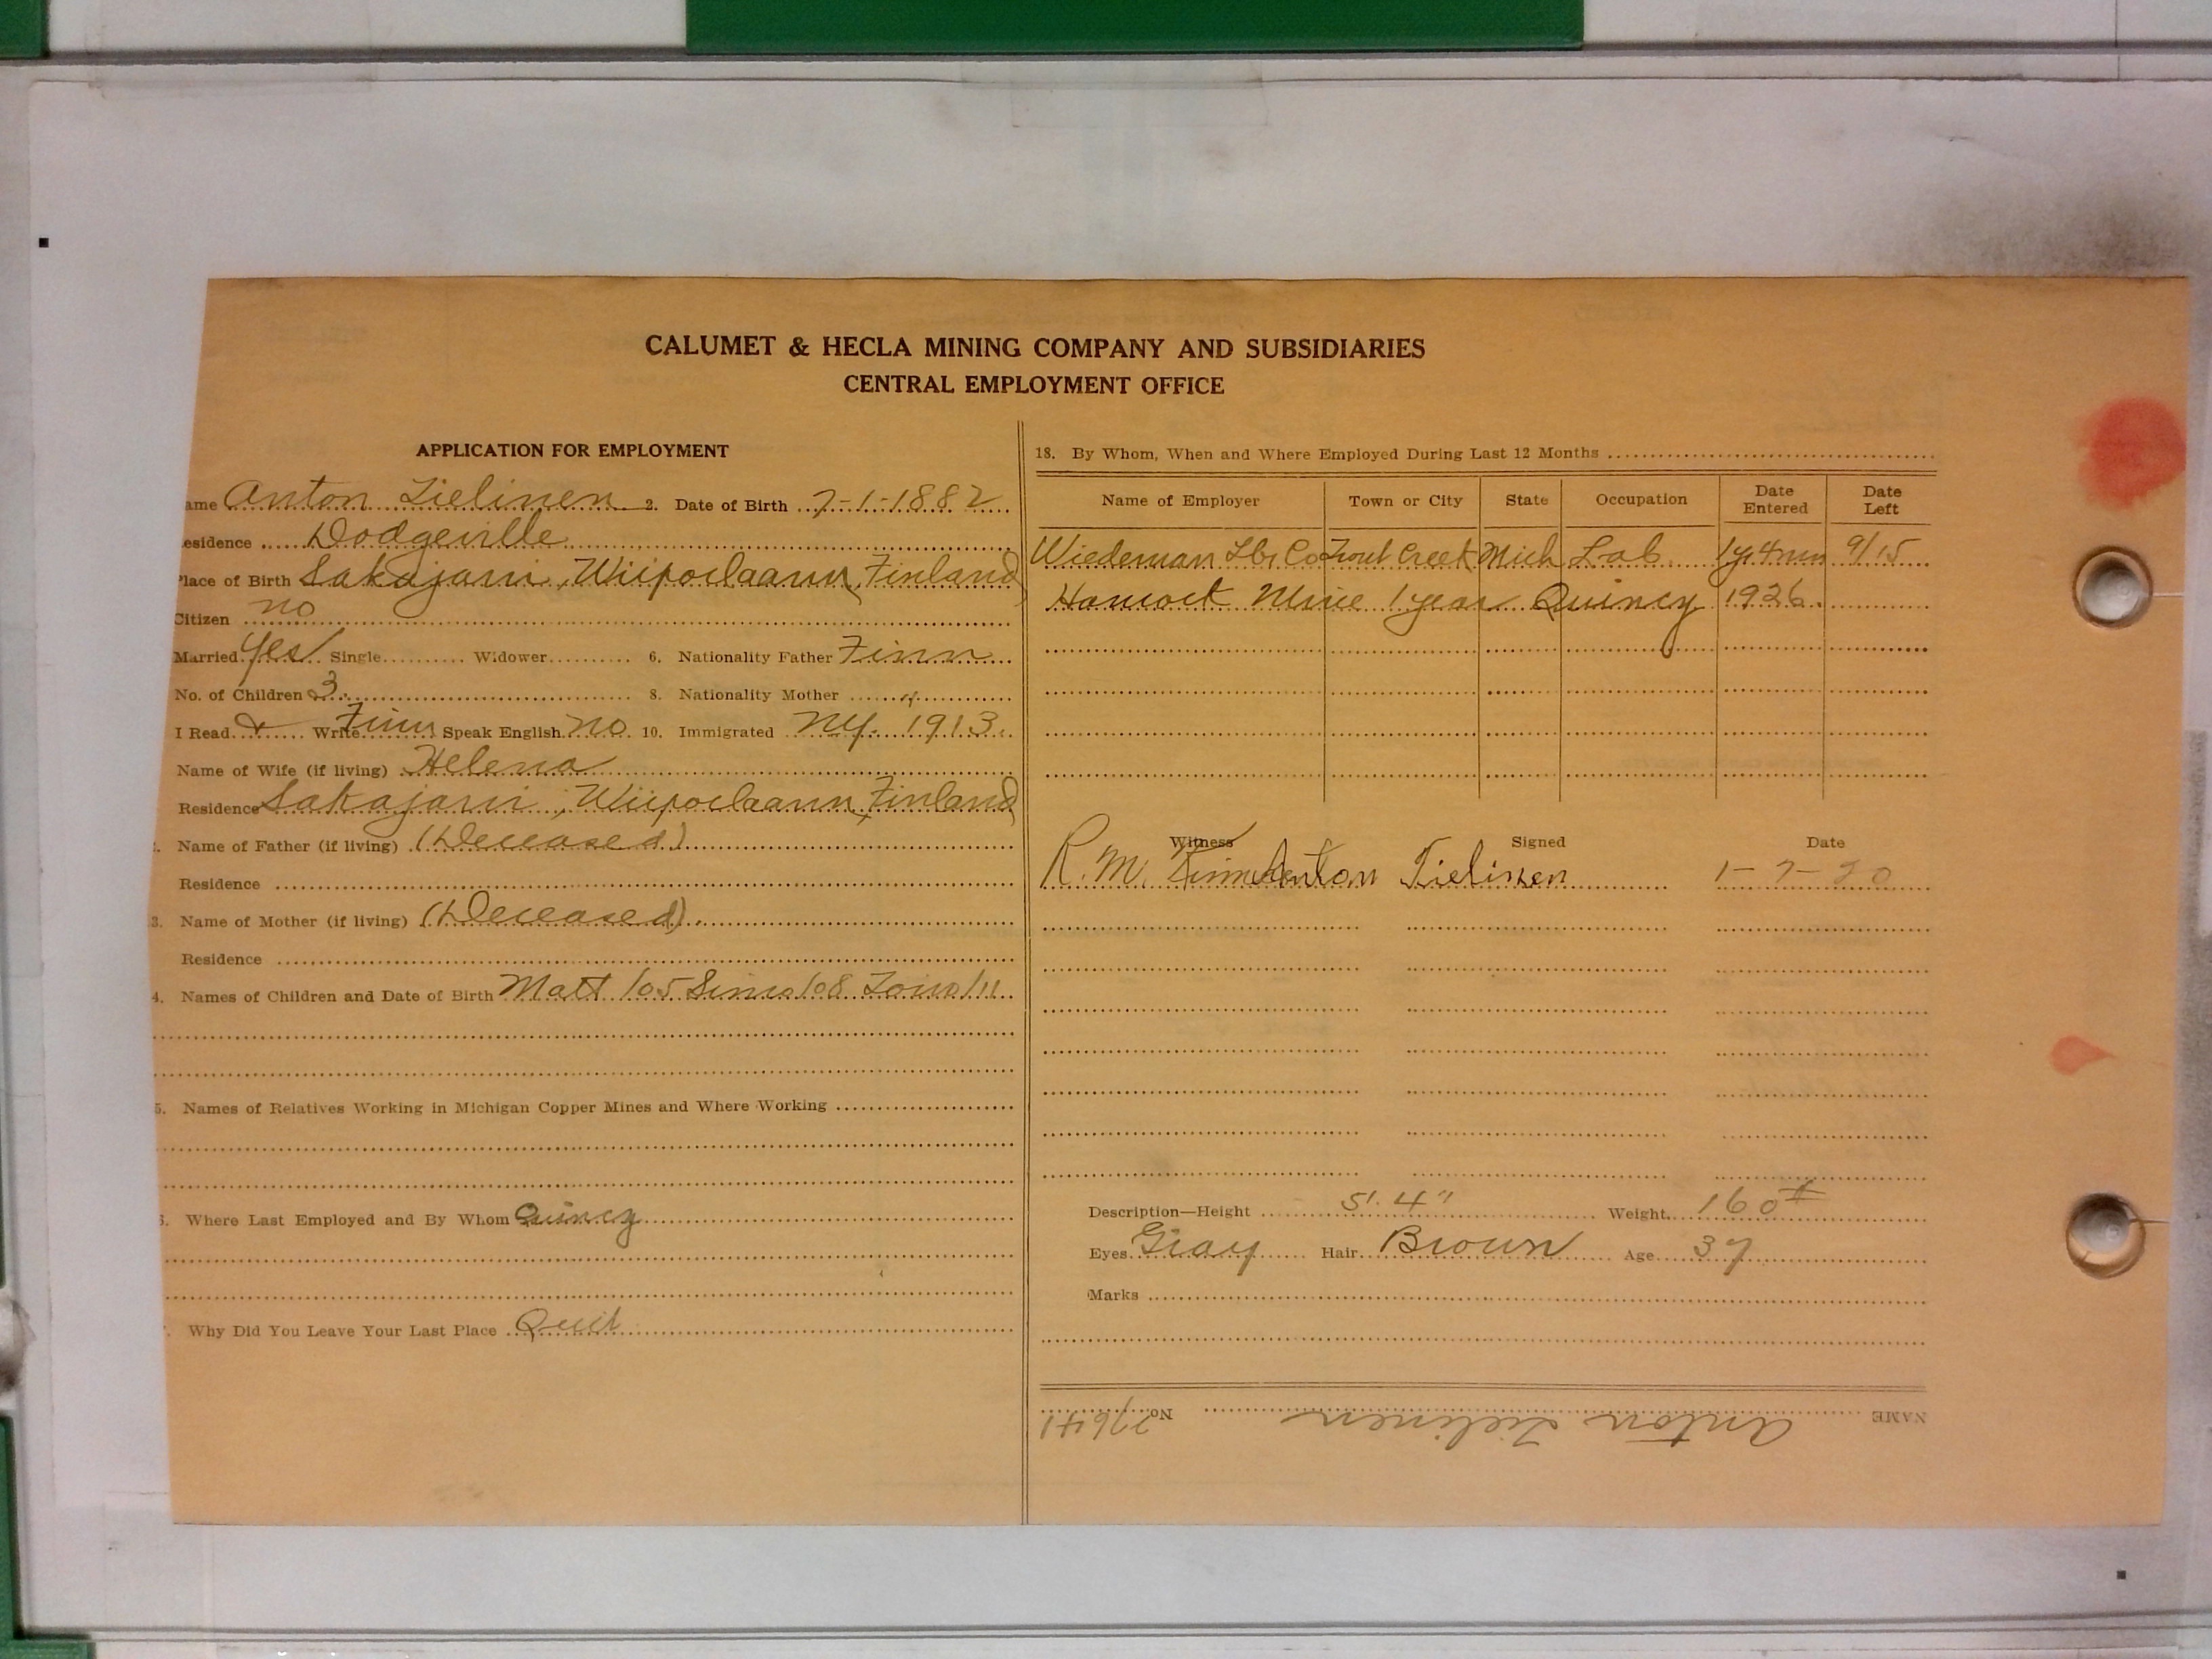 CALUMET & HECLA MINING COMPANY AND SUBSIDIARIES
CENTRAL EMPLOYMENT OFFICE
APPLICATION FOR EMPLOYMENT
ame Anton Tielinen 2. Date of Birth 7-1-1882
esidence Dodgeville
Place of Birth Sakajarvi, Wiipoclaann, Finland
Citizen no
Married yes Single Widower 6. Nationality Father Finn
No. of Children 3 8. Nationality Mother "
I Read & Write Finn Speak English no 10. Immigrated NY. 1913.
Name of Wife (if living) Helena
Residence Sakajarvi, Wiipoclaann, Finland
Name of Father (if living) (Deceased)
Residence
3. Name of Mother (if living) (Deceased)
Residence
4. Names of Children and Date of Birth Matt /05 /08 /11
5. Names of Relatives Working in Michigan Copper Mines and Where Working
Where Last Employed and By Whom Quincy
Why Did You Leave Your Last Place Quit
18. By Whom, When and Where Employed During Last 12 Months
Name of Employer Town or City State Occupation Date Entered Date Left
Wiedeman Lbr Co Trout Creek Mich Lab. 1 yr 4 mn 9/15
Hancock Mine 1 year Quincy 1926.
Witness Signed Date
R. M. Anton Tielinen 1-7-20
Description—Height 5' 4" Weight 160#
Eyes Gray Hair Brown Age 37
Marks
NAME Anton Tielinen No. 77641